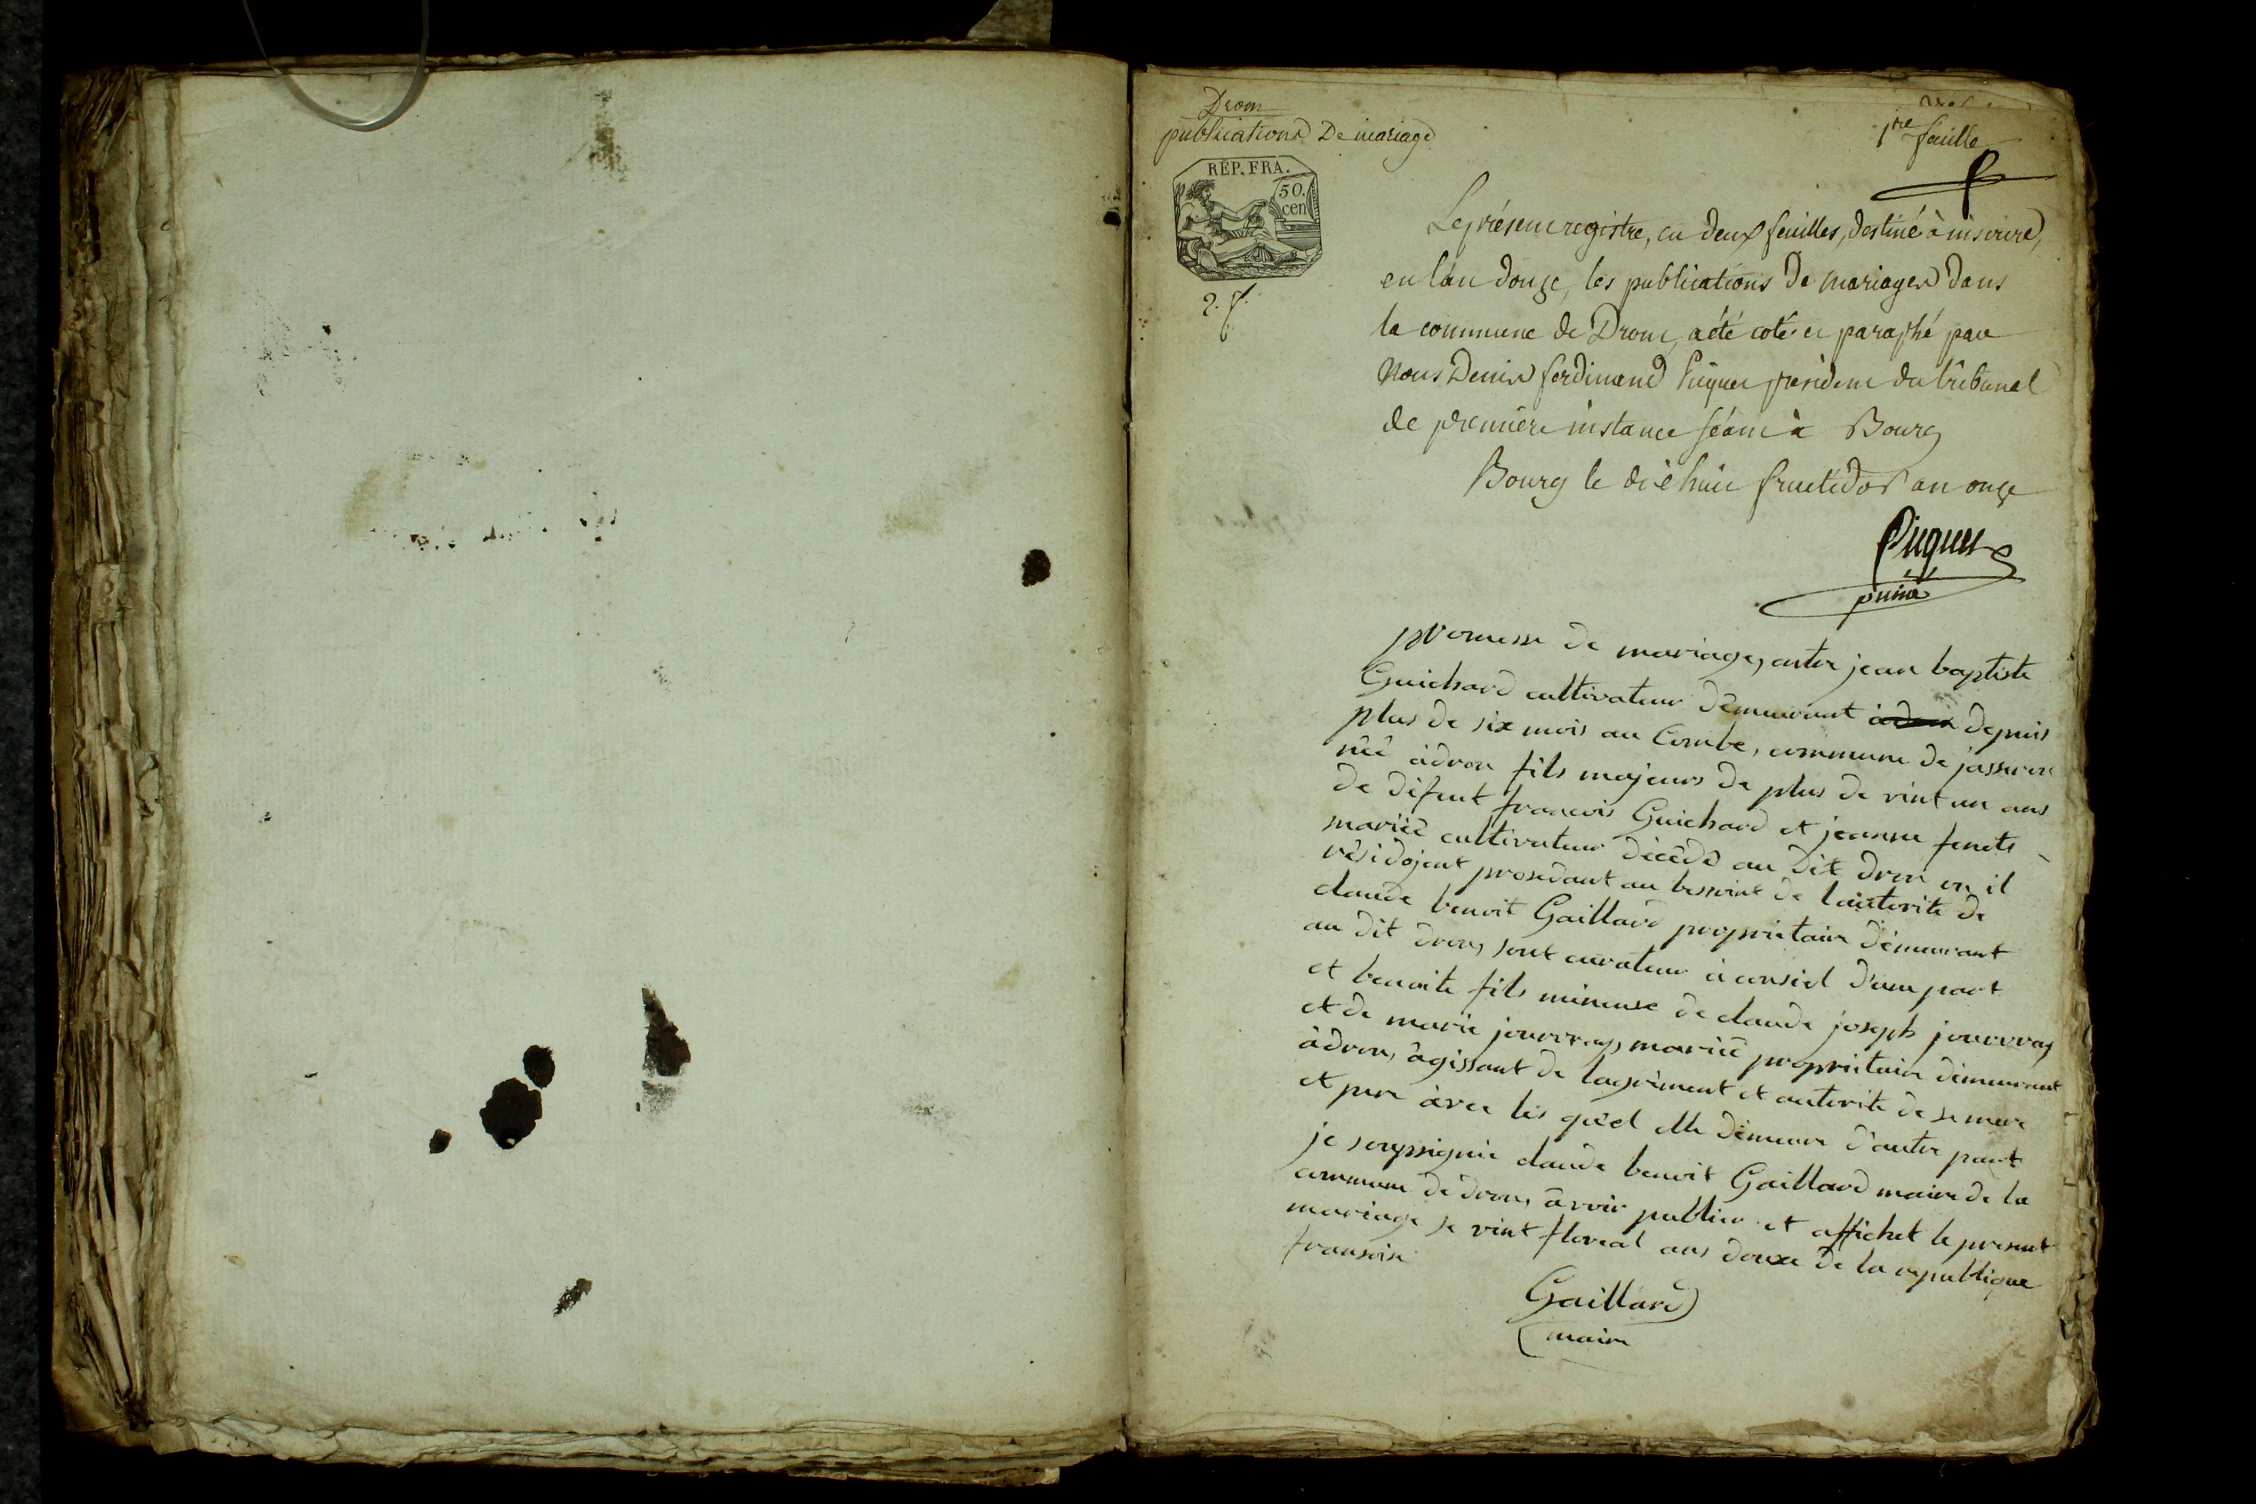 Drom
publications De mariage
1re feuille
REP. FRA.
50.
cen
Le présent registre, en deux feuilles, destiné à inscrire,
en l'an douze, les publications de mariages dans
la commune de Drom, a été coté et paraphé par
Nous Denis ferdinand Picquet président du tribunal
de première instance séant à Bourg
Bourg le dix huit fructidor an onze
Picquet
promesse de mariage, entre jean baptiste
Guichard cultivateur démeurant depuis
plus de six mois au Combe, commune de jasseron
néê àdron fils majeurs de plus de vint un ans
de défeut francois Guichard et jeanne
mariéê cultivateur décédé au dit dron ou il
résidojent prosedant au bessoint de lauterité de
claude benoit Gaillard proprietaire démeurant
au dit dron, sont curateur à consiel d'une part
et benoite fils mineuse de claude joseph jouvray
et de marie jouvray, mariéê proprietaire démeurant
àdron, âgissant de lagrément et auterité de se mere
et pere àvec les qu'el elle démeure d'autre part
je souyssignié claude benoit Gaillard maire de la
commune dé dron, àvoir publier et affichet le present
mariage le vint floreal ans douxe de la republique
fransoise
Gaillard
maire